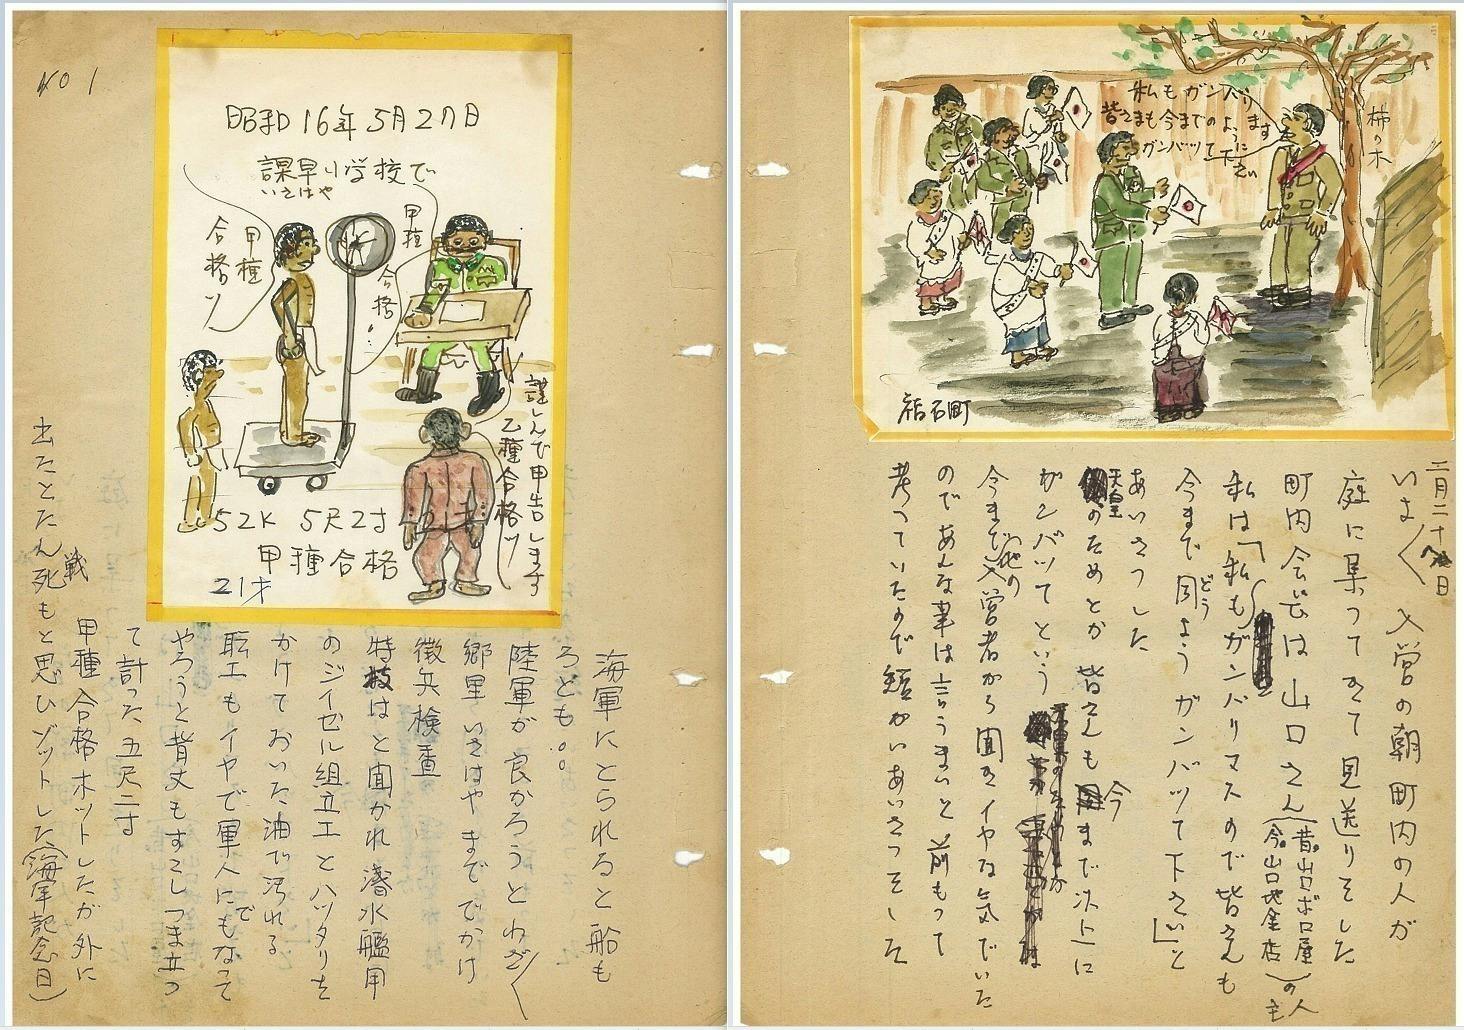 NO 1
昭和16年5月27日
諫早小学校で
いさはや
甲種
合格ッ
甲種
合格!
謹しんで申告します
乙種合格ッ
52K 5尺2寸
甲種合格
21才
海軍にとられると船も
ろとも。。
陸軍が良かろうとわざ〳〵
郷里いさはやまででかけ
徴兵検査
特技はと聞かれ潜水艦用
のジイゼル組立工とハツタリを
かけておいた油で汚れる
職工もイヤで軍人にもなって
やろうと背丈もすこしつま立つ
て計った五尺二寸
甲種合格ホットしたが外に
出たとたん戦死もと思ひゾットした(海軍記念日)
私もガンバリ
ます
皆さまも今までのように
ガンバッて下さい
柿の木
二月二十 日
いよ〳〵入営の朝町内の人が
庭に集つてきて見送りをした
町内会長は山口さん(昔山口ボロ屋
今山口地金店)の人
私は「私もガンバリマスので皆さんも
今まで同ようガンバッて下さい」と
どう
あいさつした
天皇陛のためとか皆さんも今まで以上に
ガンバッてという
今まで他の入営者から聞きイヤな気でいた
のであんな事は言うまいと前もって
考っていたので短かいあいさつをした